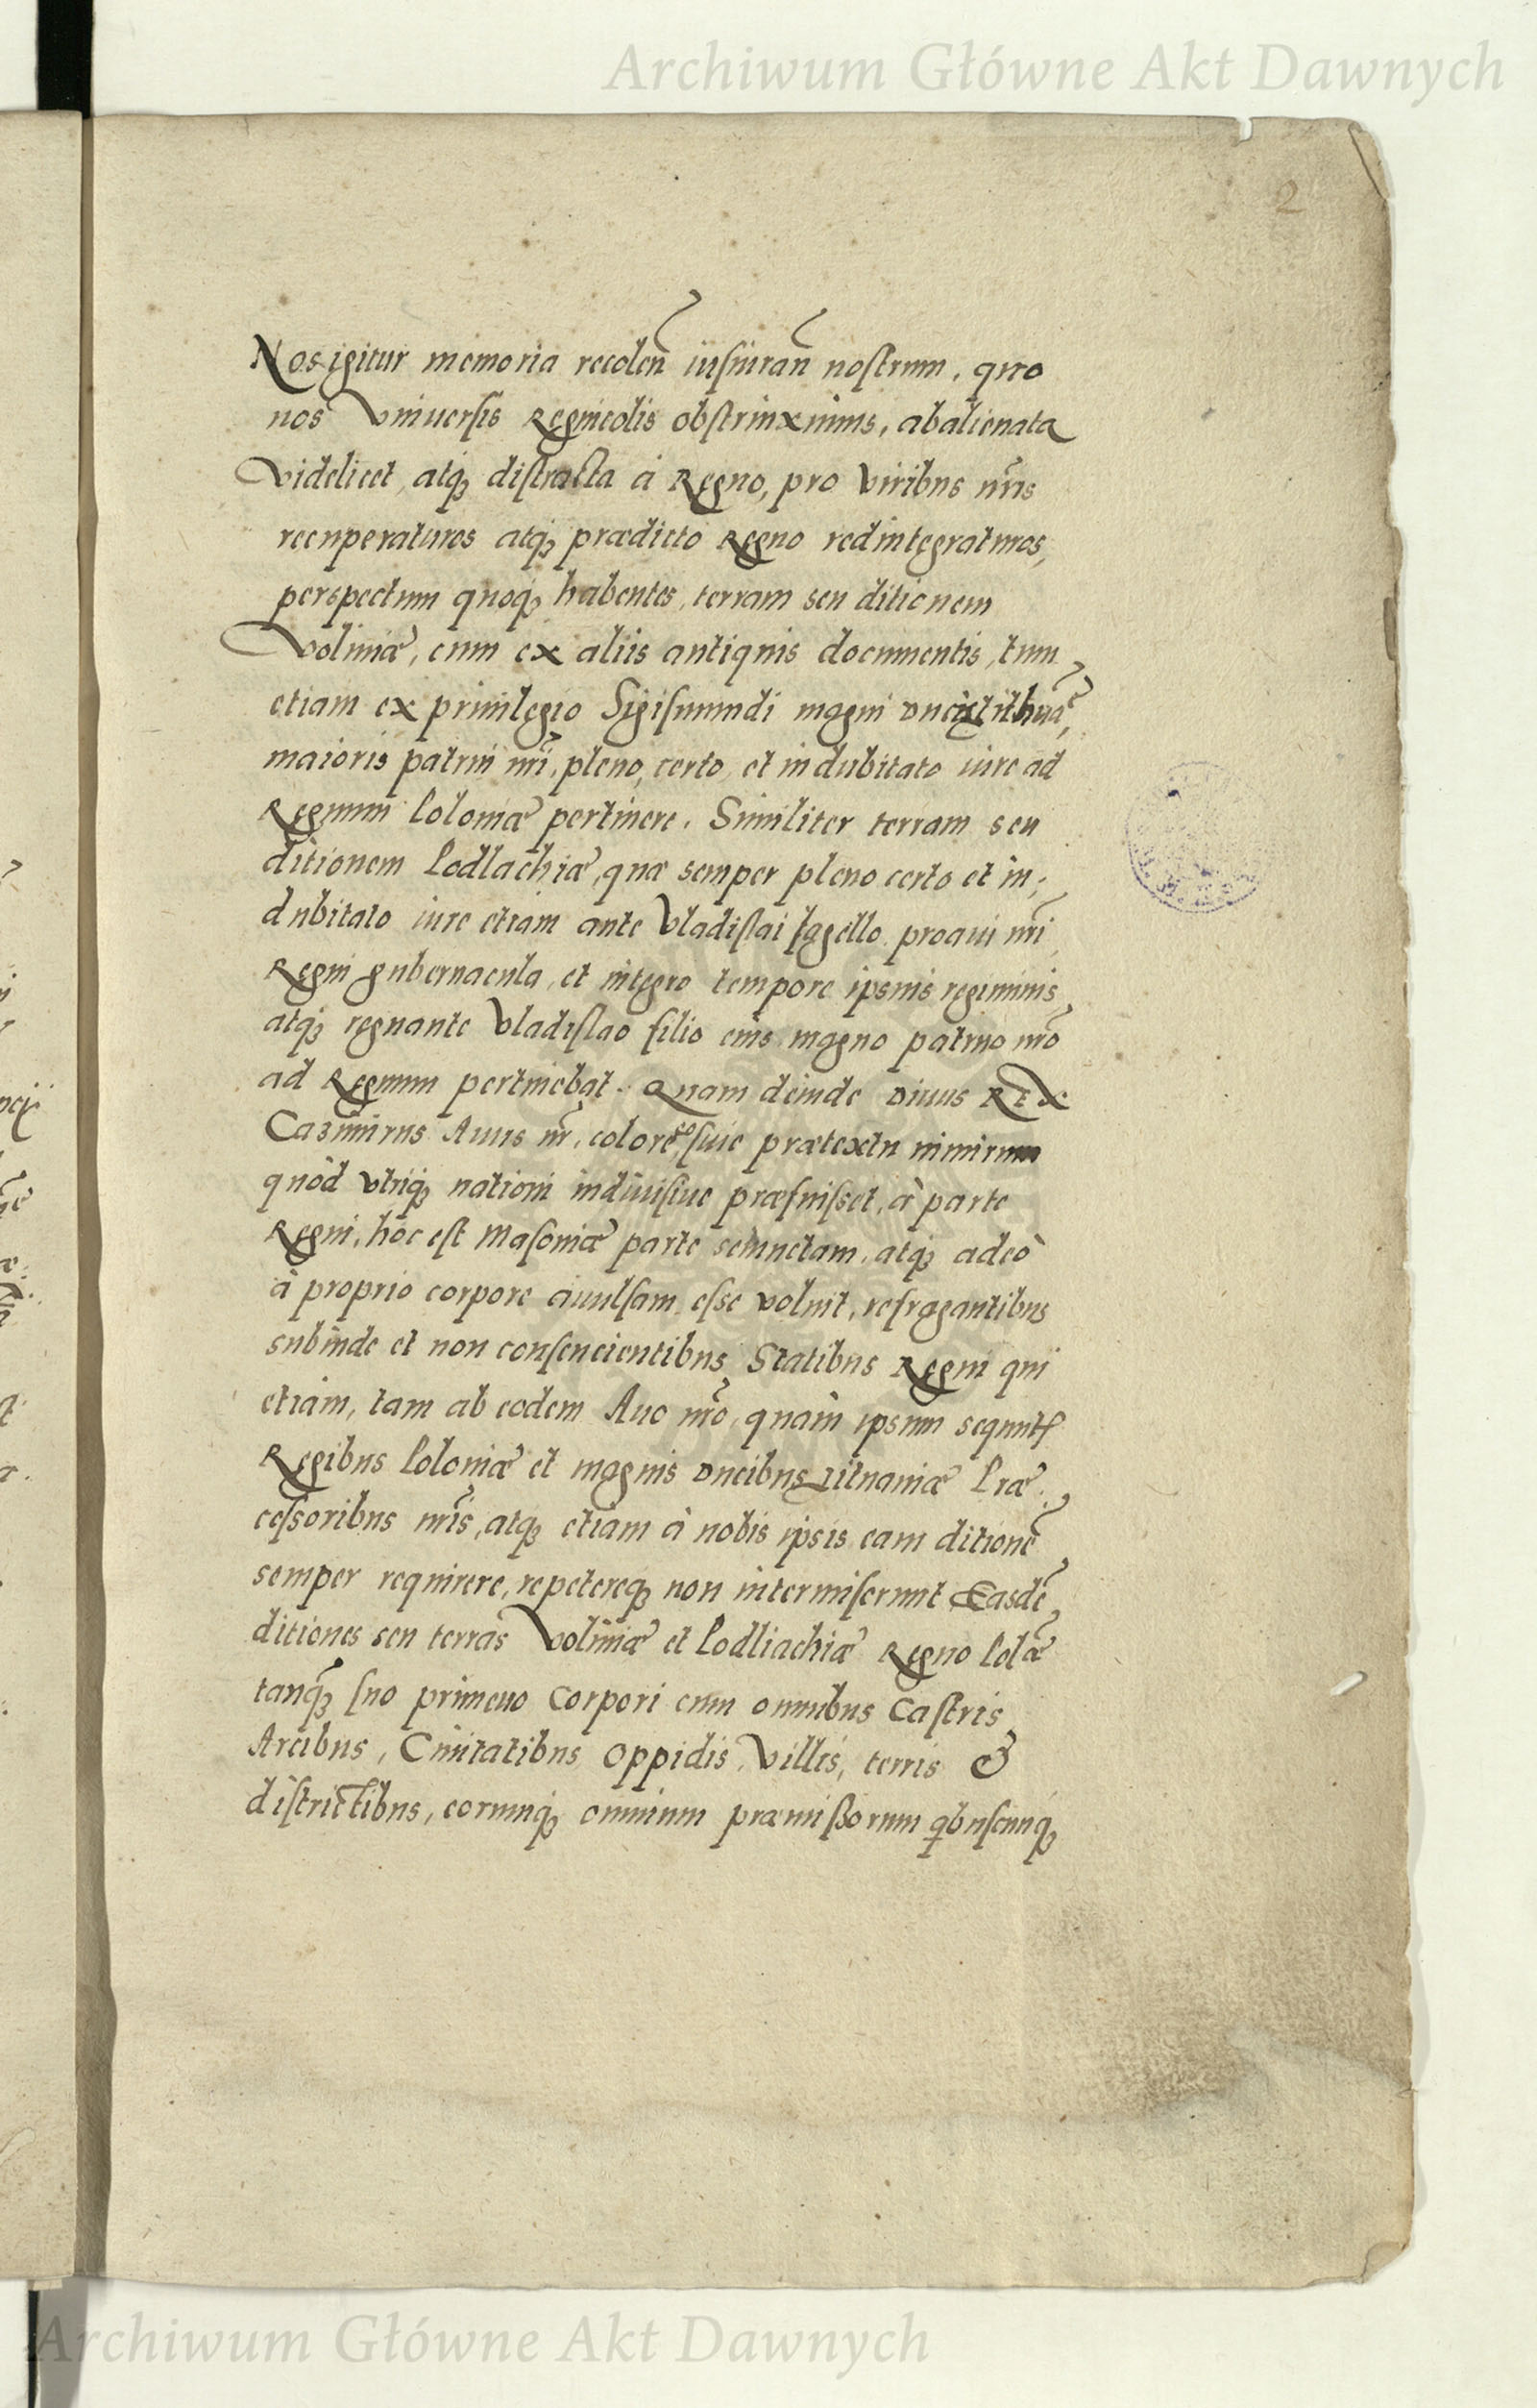 Archiwum Główne Akt Dawnych
2
Nos igitur memoria recolen̄ iusiuran̄ nostrum, quo
nos Vniuersis Regnicolis obstrinximus, abalienata
Videlicet, atq; distracta à Regno, pro viribus nr̄is
recuperaturos atq; prædicto Regno redintegraturos,
perspectum quoq; habentes, terram seu ditionem
Voliniæ, cum ex aliis antiquis documentis, tum
etiam ex priuilegio Sigismundi magni Ducis Lithuaē,
maioris patrui nr̄i, pleno, certo, et indubitato iure ad
Regnum Poloniæ pertinere. Similiter terram seu
ditionem Podlachiæ, quæ semper pleno certo et in,
dubitato iure etiam ante Vladislai Jagello proaui nr̄i
Regni gubernacula, et integro tempore ipsius regiminis
atq; regnante Vladislao filio eius magno patruo nr̄o
ad Regnum pertinebat. Quam deinde Diuus Rex
Cazimirus Auus nr̄, colore siue prætextu nimirum
quòd vtriq; nationi indiuisiue præfuisset, à parte
Regni, hoc est Masoniæ parte seiunctam, atq; adeò
à proprio corpore auulsam esse voluit, refragantibus
subinde et non consencientibus Statibus Regni qui
etiam, tam ab eodem Auo nr̄o, quàm ipsum sequent
Regibus Poloniæ et magnis Ducibus Lituaniæ Præ.
cessoribus nr̄is, atq; etiam à nobis ipsis eam ditionē
semper requirere, repetereq; non intermiserunt Easdē
ditiones seu terras Voliniæ et Podliachiæ Regno Polǣ
tanq̄; suo primeuo Corpori cum omnibus Castris
Arcibus, Ciuitatibus Oppidis, Villis, terris &
districtibus, eorumq; omnium præmissorum qbuscunq;
Archiwum Główne Akt Dawnych